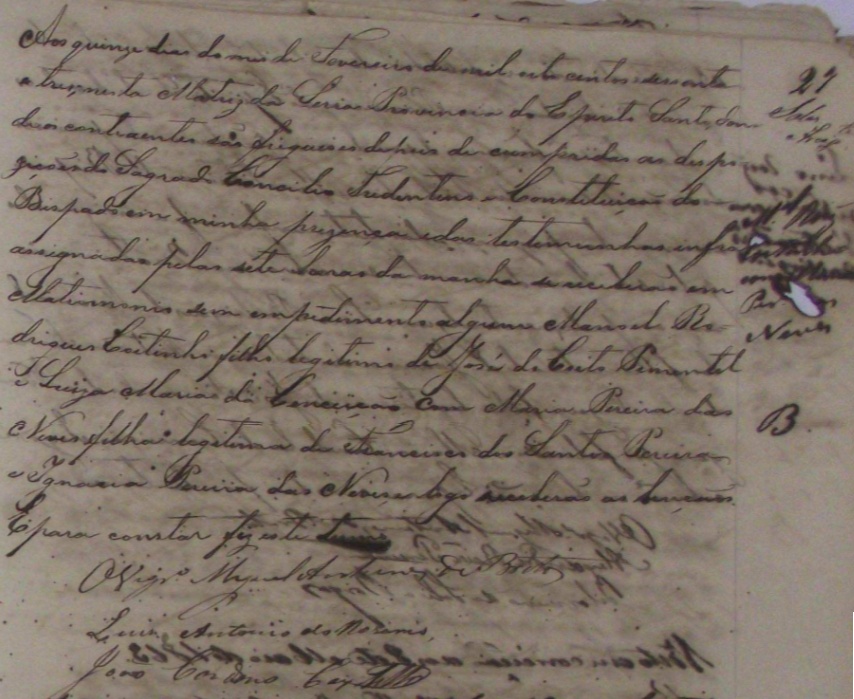 Aos quinze dias do mes de Fevereiro de mil oito centos sessenta
e tres, nesta Matriz da Serra Provincia do Espirito Santo, donde
dois contraentes são freguezes depois de cumpridas as despo-
zições do Sagrado Concilio Tredentino e Constituição do
Bispado em minha prezença e das testimunhas infra
assignadas pelas sete horas da manhã se receberão em
Matrimonio sem empedimento algum Manoel Ro-
drigues Coitinho filho legitimo de José do Couto Pimentel
e Luiza Maria da Conceição com Maria Pereira das
Neves filha legitima de Francisco dos Santos Pereira
e Ignacia Pereira das Neves e logo receberão as bençãos.
E para constar fiz este termo
O Vigr.º Miguel Antunes de
Luis Antonio do
João
27
Neves
B